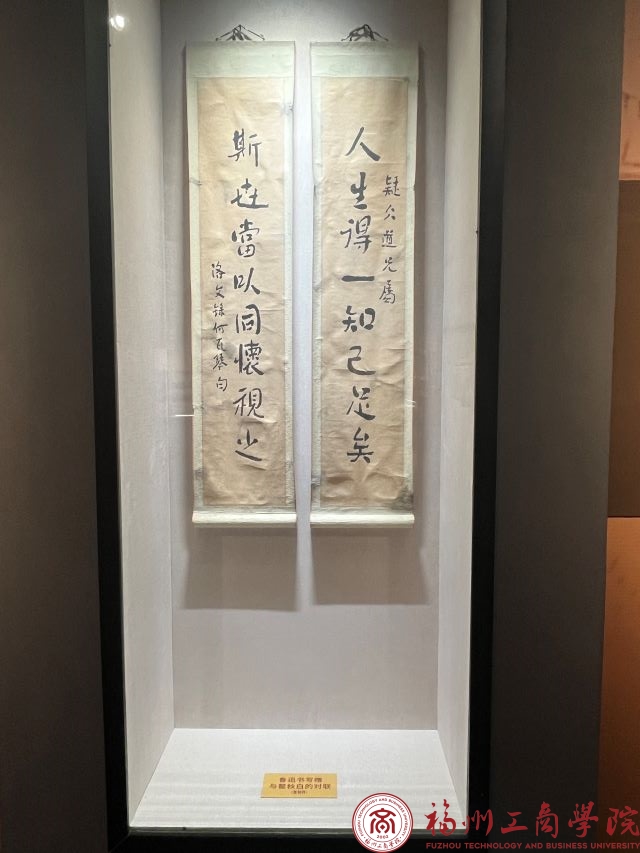 人生得一知己足矣
疑仌道兄屬
斯世當以同懷視之
洛文錄何瓦琴句
鲁迅书写赠
与瞿秋白的对联
(复制件)
福州工商学院
FUZHOU TECHNOLOGY AND BUSINESS UNIVERSITY
FUZHOU TECHNOLOGY AND BUSINESS UNIVERSITY
2003